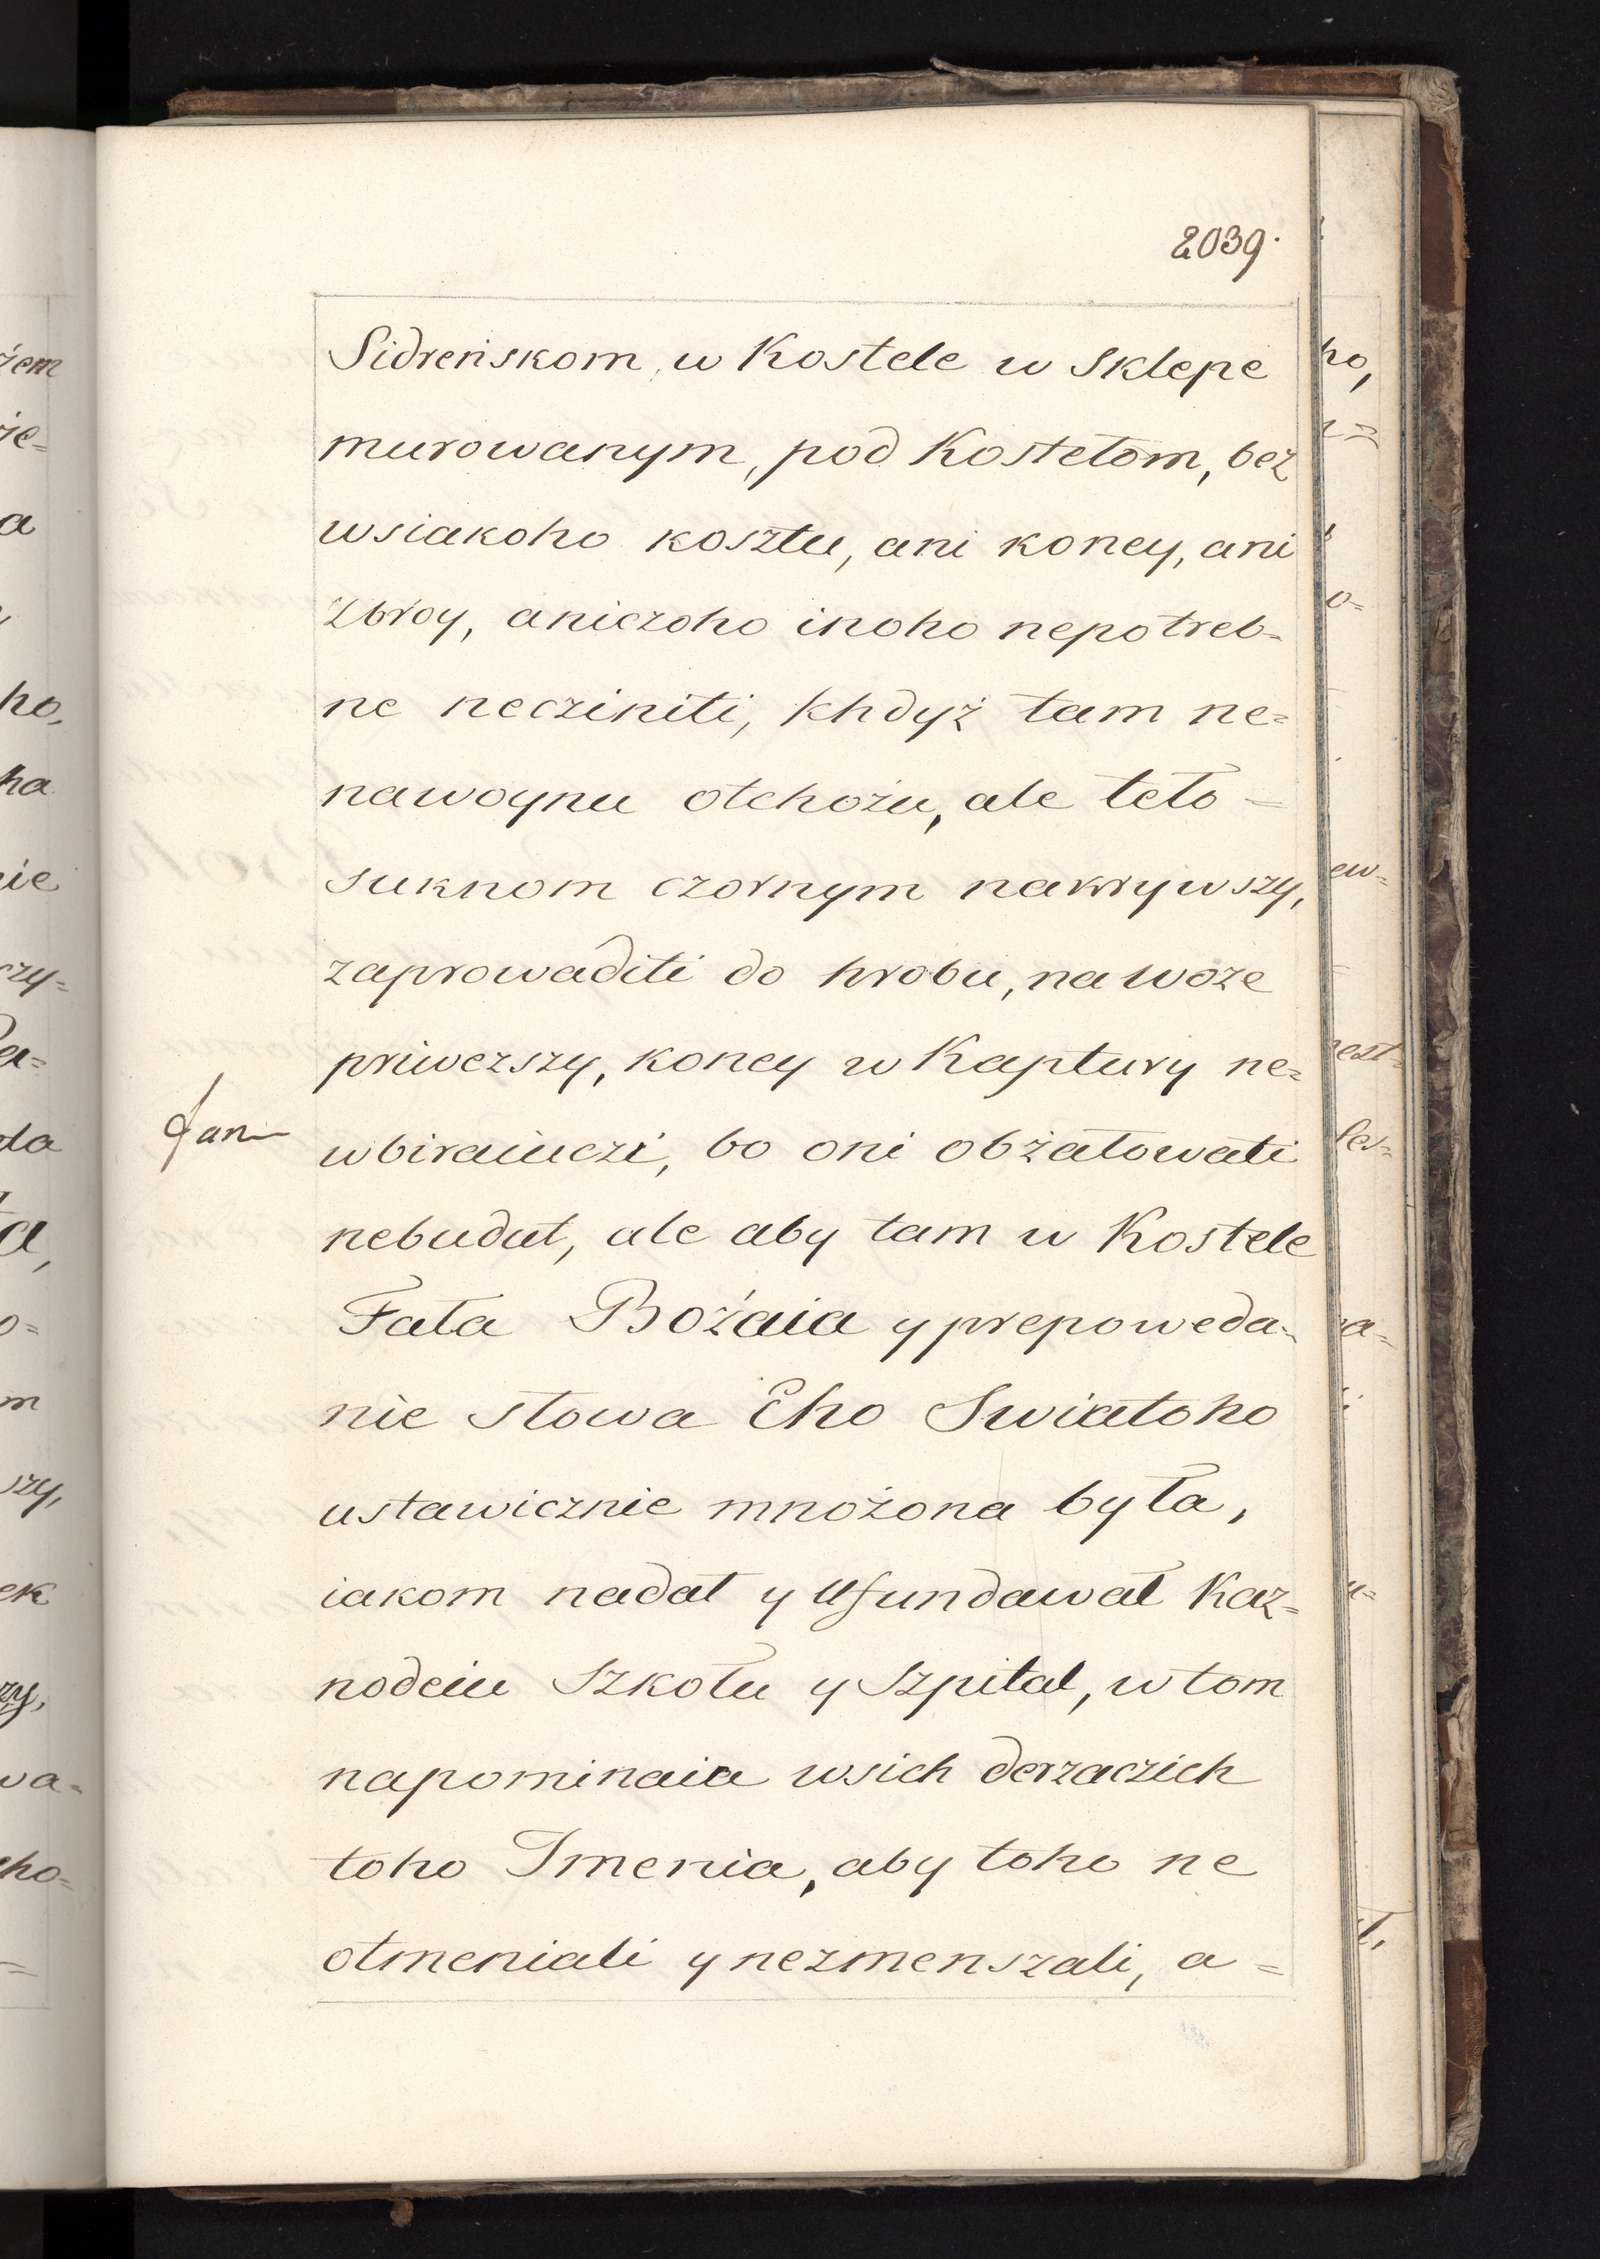 2039.
Sidreńskom, w Kostele w Sklepe
murowanym, pod Kostełom, bez
wsiakoho kosztu, ani koney, ani
Zbroy, aniczoho inoho nepotreb=
ne necziniti, khdyż tam ne=
nawoynu otchożu, ale teło=
suknom czornym nakrywszy,
zaprowaditi do hrobu, na woze
priwezszy, koney w Kaptury ne=
wbiraiuczi, bo oni obżałowati
nebudut, ale aby tam w Kostele
Fała Bożaia y prepoweda=
nie słowa Eho Swiatoho
ustawicznie mnożona była,
iakom nadał y Ufundawał Kaz=
nodeiu Szkołu y Szpital, w tom
napominaia wsich derzaczich
toho Imenia, aby toho ne
otmeniali y nezmenszali, a=